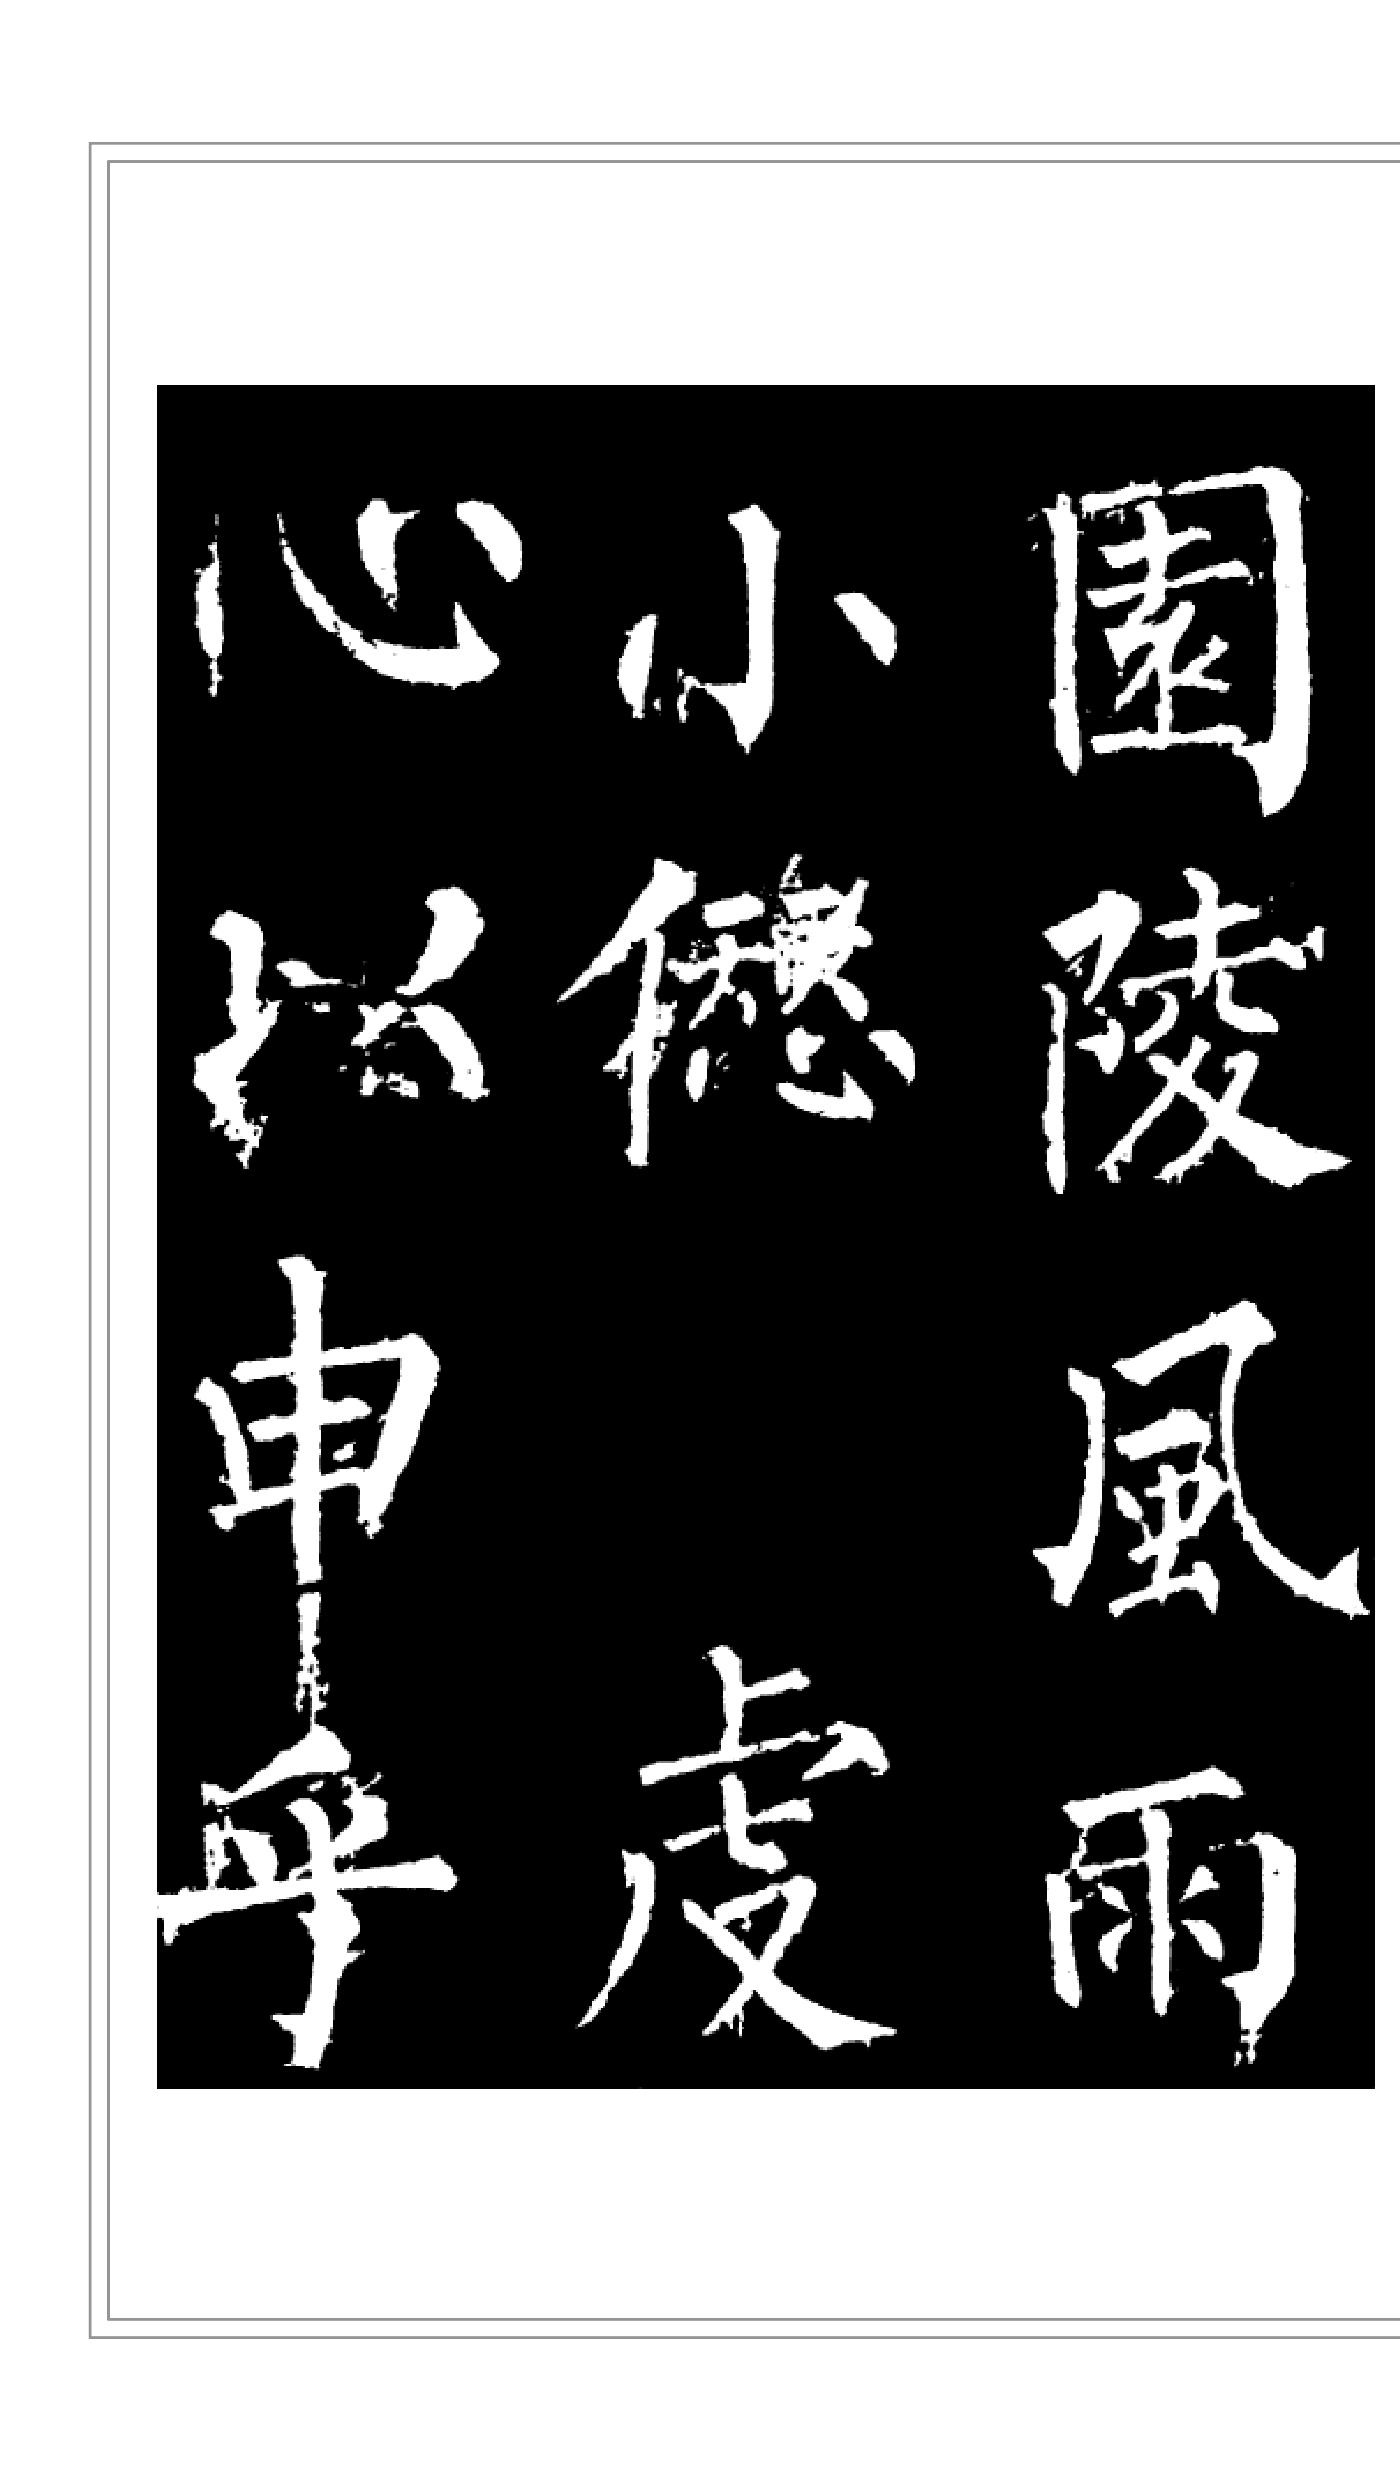 園陵風雨
小虔
心以申乎